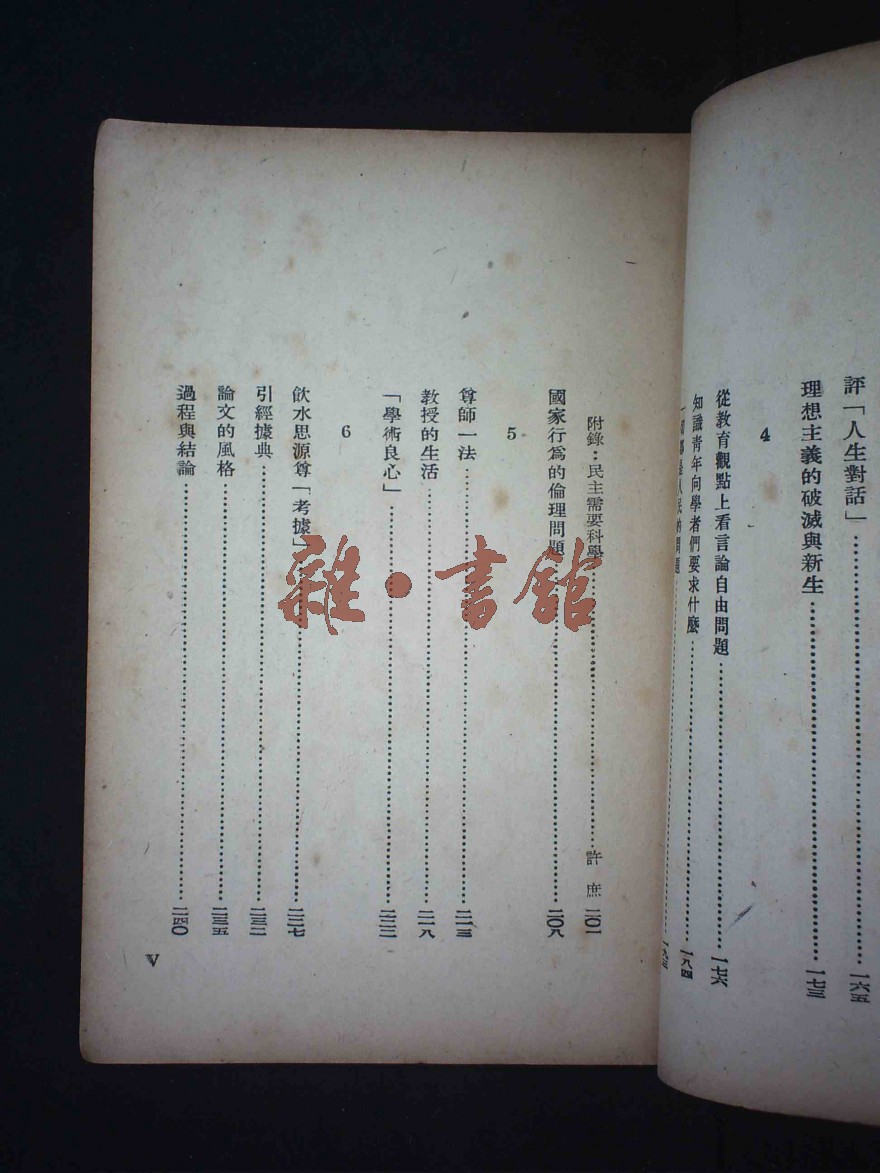 評「人生對話」……一六五
理想主義的破滅與新生……一七三
4
從教育觀點上看言論自由問題……一七六
知識青年向學者們要求什麼……一八四
人民的問題……一九五
附錄：民主需要科學……許庶 二〇一
國家行為的倫理問題……二〇八
5
尊師一法……二一三
教授的生活……二一八
「學術良心」……二二二
6
飲水思源尊「考據」……二二七
引經據典……二三二
論文的風格……二三五
過程與結論……二四〇
V
雜·書館